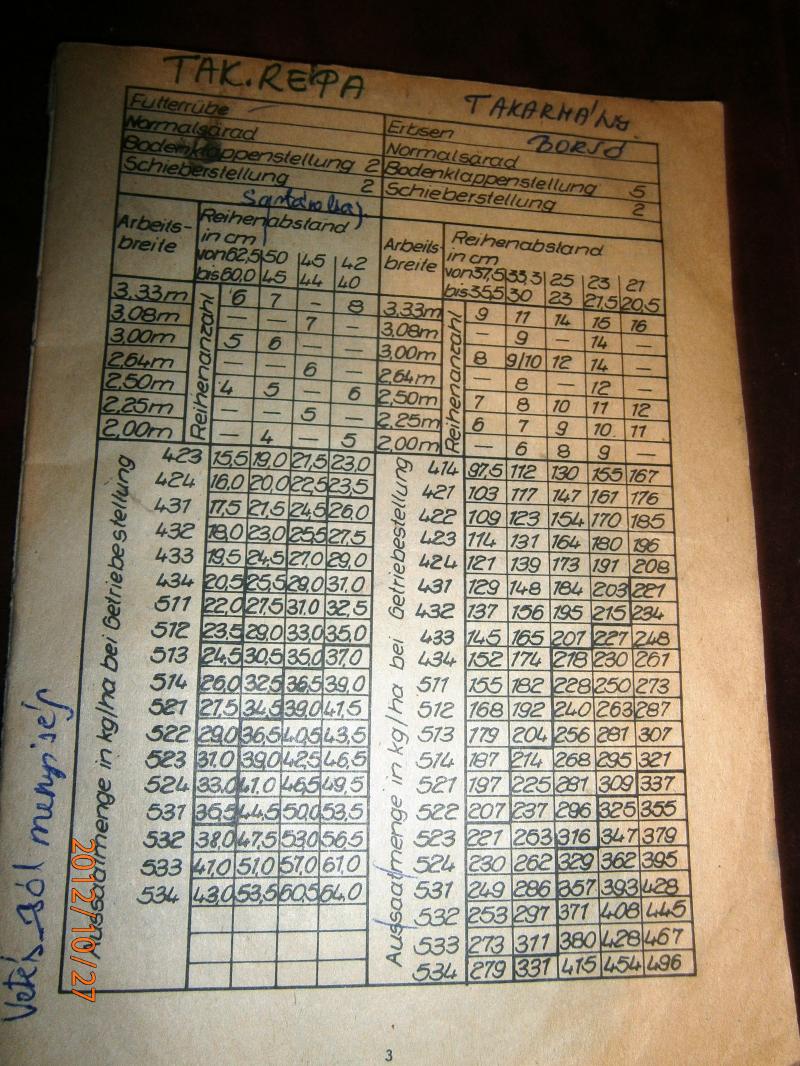 TAK. REPA
TAKARMÁNY
BORSÓ
Futterrübe
Normalsärad
Bodenklappenstellung 2
Schieberstellung 2
Arbeits-breite
Reihenabstand in cm
von 62,5 50 45 42
bis 60,0 45 44 40
Reihenanzahl
3,33m 6 7 – 8
3,08m – – 7 –
3,00m 5 6 – –
2,64m – – 6 –
2,50m 4 5 – 6
2,25m – – 5 –
2,00m – 4 – 5
Aussaatmenge in kg/ha bei Getriebestellung
423 15,5 19,0 21,5 23,0
424 16,0 20,0 22,5 23,5
431 17,5 21,5 24,5 26,0
432 18,0 23,0 25,5 27,5
433 19,5 24,5 27,0 29,0
434 20,5 25,5 29,0 31,0
511 22,0 27,5 31,0 32,5
512 23,5 29,0 33,0 35,0
513 24,5 30,5 35,0 37,0
514 26,0 32,5 36,5 39,0
521 27,5 34,5 39,0 41,5
522 29,0 36,5 40,5 43,5
523 31,0 39,0 42,5 46,5
524 33,0 41,0 46,5 49,5
531 36,5 44,5 50,0 53,5
532 38,0 47,5 53,0 56,5
533 41,0 51,0 57,0 61,0
534 43,0 53,5 60,5 64,0
Erbsen
Normalsärad
Bodenklappenstellung 5
Schieberstellung 2
Arbeits-breite
Reihenabstand in cm
von 37,5 33,3 25 23 21
bis 35,5 30 23 21,5 20,5
Reihenanzahl
3,33m 9 11 14 15 16
3,08m – 9 – 14 –
3,00m 8 9/10 12 14 –
2,64m – 8 – 12 –
2,50m 7 8 10 11 12
2,25m 6 7 9 10 11
2,00m – 6 8 9 –
Aussaatmenge in kg/ha bei Getriebestellung
414 97,5 112 130 155 167
421 103 117 147 161 176
422 109 123 154 170 185
423 114 131 164 180 196
424 121 139 173 191 208
431 129 148 184 203 221
432 137 156 195 215 234
433 145 165 207 227 248
434 152 174 218 230 261
511 155 182 228 250 273
512 168 192 240 263 287
513 179 204 256 281 307
514 187 214 268 295 321
521 197 225 281 309 337
522 207 237 296 325 355
523 221 253 316 347 379
524 230 262 329 362 395
531 249 286 357 393 428
532 253 297 371 408 445
533 273 311 380 428 467
534 279 331 415 454 496
2012/10/27
3